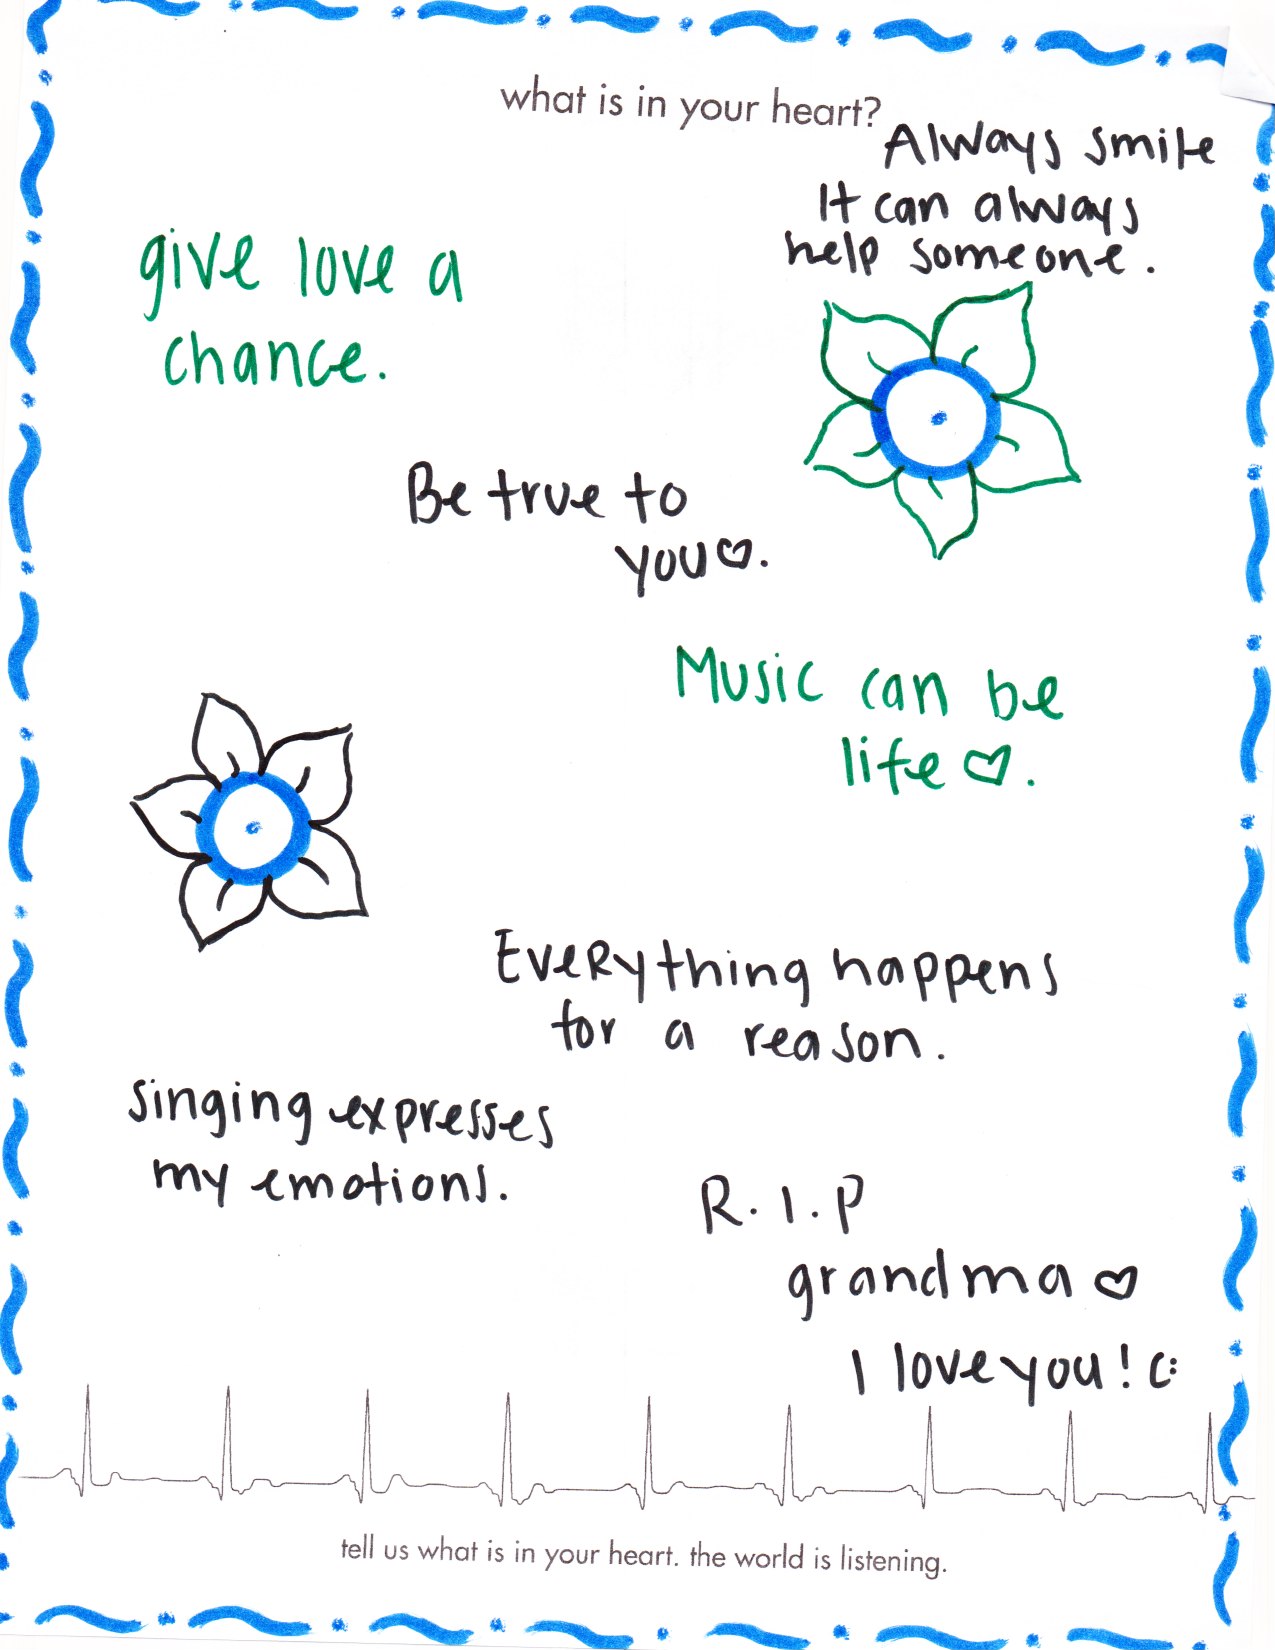 what is in your heart?
Always smile
It can always
help someone.
give love a
chance.
Be true to
you♡.
Music can be
life♡.
Everything happens
for a reason.
singing expresses
my emotions.
R.I.P
grandma♡
I love you! c:
tell us what is in your heart. the world is listening.